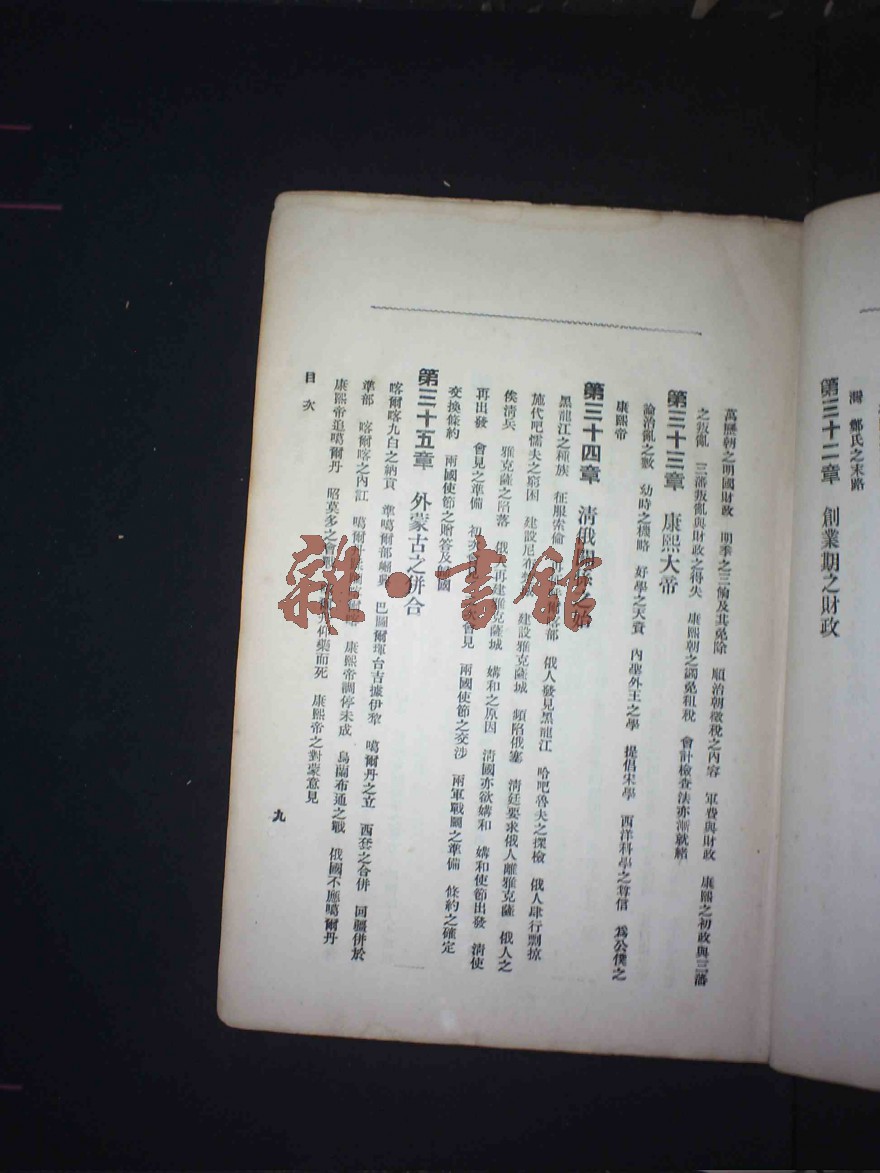 灣 鄭氏之末路
第三十二章 創業期之財政
萬曆朝之明國財政 明季之三餉及其免除 順治朝徵稅之內容 軍費與財政 康熙之初政與三藩
之叛亂 三藩叛亂與財政之得失 康熙朝之蠲免租稅 會計檢查法亦漸就緒
第三十三章 康熙大帝
論治亂之數 幼時之機略 好學之天資 內聖外王之學 提倡宋學 西洋科學之尊信 為公僕之
康熙帝
第三十四章 清俄關係之始
黑龍江之種族 征服索倫 部 俄人發見黑龍江 哈吧魯夫之探檢 俄人肆行剽掠
施代吧懦夫之窮困 建設尼布 建設雅克薩城 頻陷俄塞 清廷要求俄人離雅克薩 俄人之
俟清兵 雅克薩之陷落 俄 再建雅克薩城 媾和之原因 清國亦欲媾和 媾和使節出發 清使
再出發 會見之準備 初次會見 次會見 兩國使節之交涉 兩軍戰鬭之準備 條約之確定
交換條約 兩國使節之贈答及歸國
第三十五章 外蒙古之併合
喀爾喀九白之納貢 準噶爾部崛興 巴圖爾琿台吉據伊犂 噶爾丹之立 西套之合併 回疆併於
準部 喀爾喀之內訌 噶爾丹 喀爾喀 康熙帝調停未成 烏蘭布通之戰 俄國不應噶爾丹
康熙帝追噶爾丹 昭莫多之會戰 仰藥而死 康熙帝之對蒙意見
目次
九
雜·書館